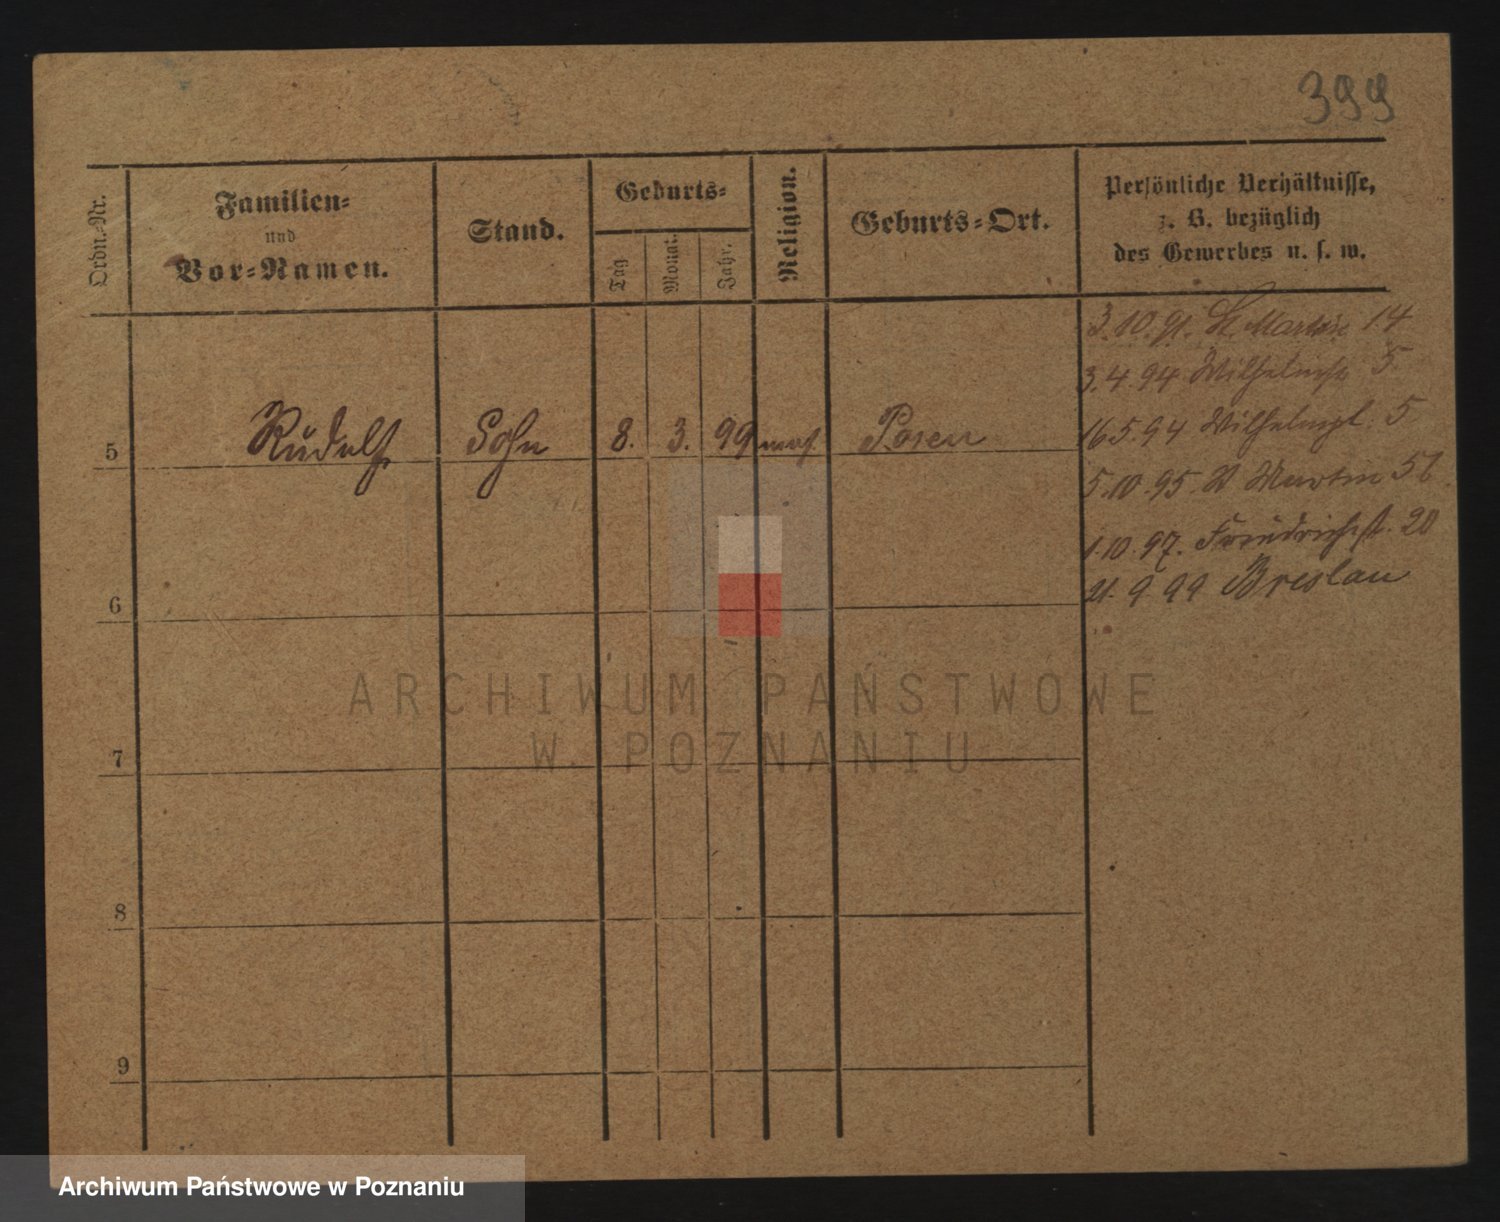 399
Ordn.-Nr.
Familien-
und
Vor-Namen.
Stand.
Geburts-
Tag
Monat.
Jahr.
Religion.
Geburts-Ort.
Persönliche Verhältnisse,
z. B. bezüglich
des Gewerbes u. s. w.
3.10.91. St. Martin 14
3.4.94 Wilhelmstr. 5
16.5.94 Wilhelmpl. 5
5 Rudolf Sohn 8. 3. 99 mos. Posen
5.10.95. St Martin 56.
1.10.97. Friedrichst. 20
21.9 99 Breslau
6
7
8
9
ARCHIWUM PAŃSTWOWE
W POZNANIU
Archiwum Państwowe w Poznaniu